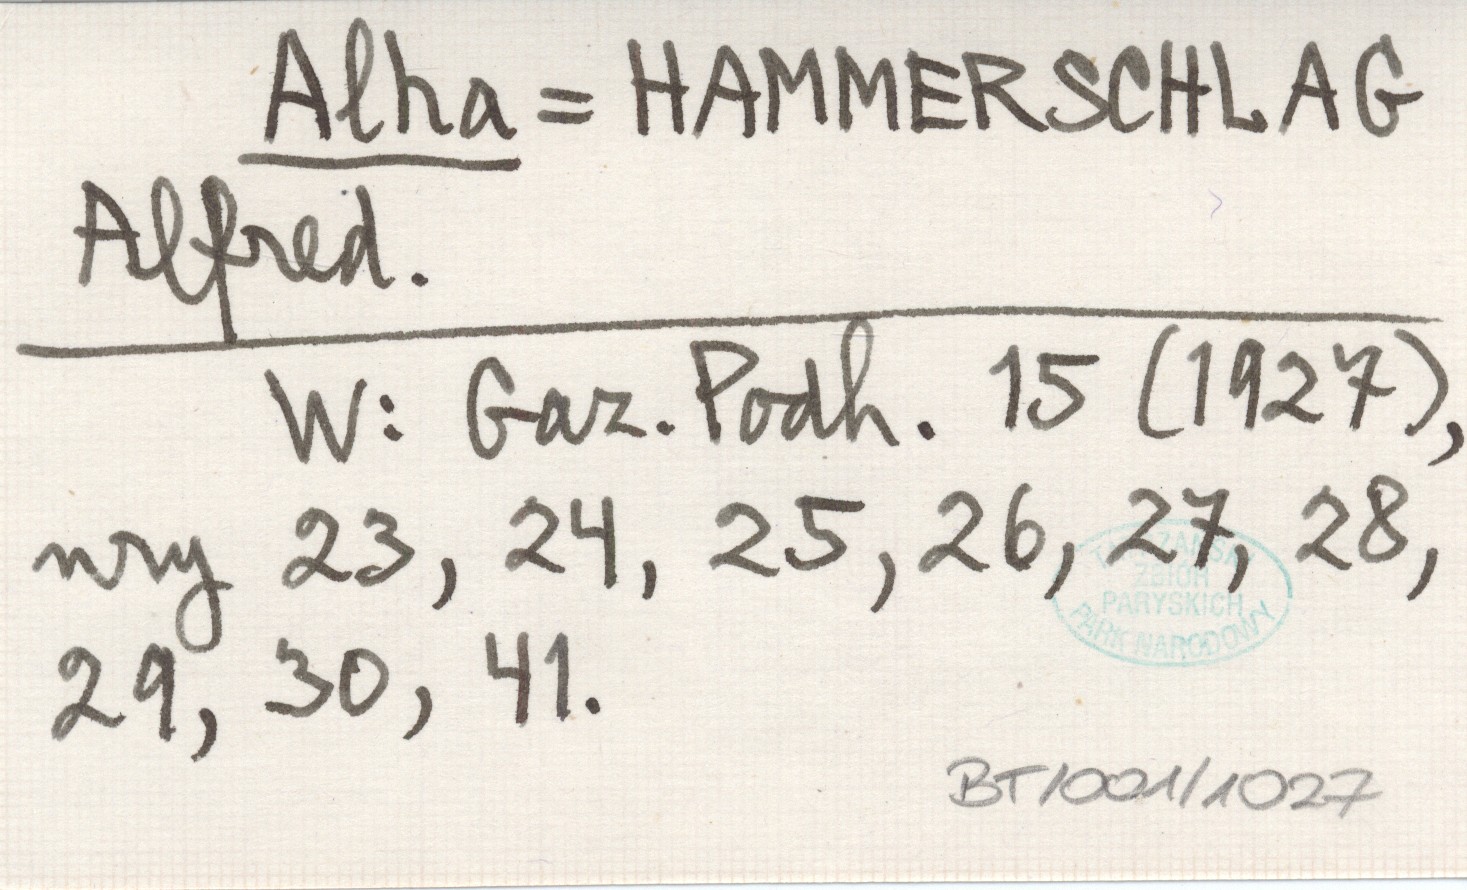 Alha = HAMMERSCHLAG
Alfred.
W: Gaz. Podh. 15 (1927),
nry 23, 24, 25, 26, 27, 28,
29, 30, 41.
TATRZAŃSKI
ZBIÓR
PARYSKICH
PARK NARODOWY
BT/001/1027